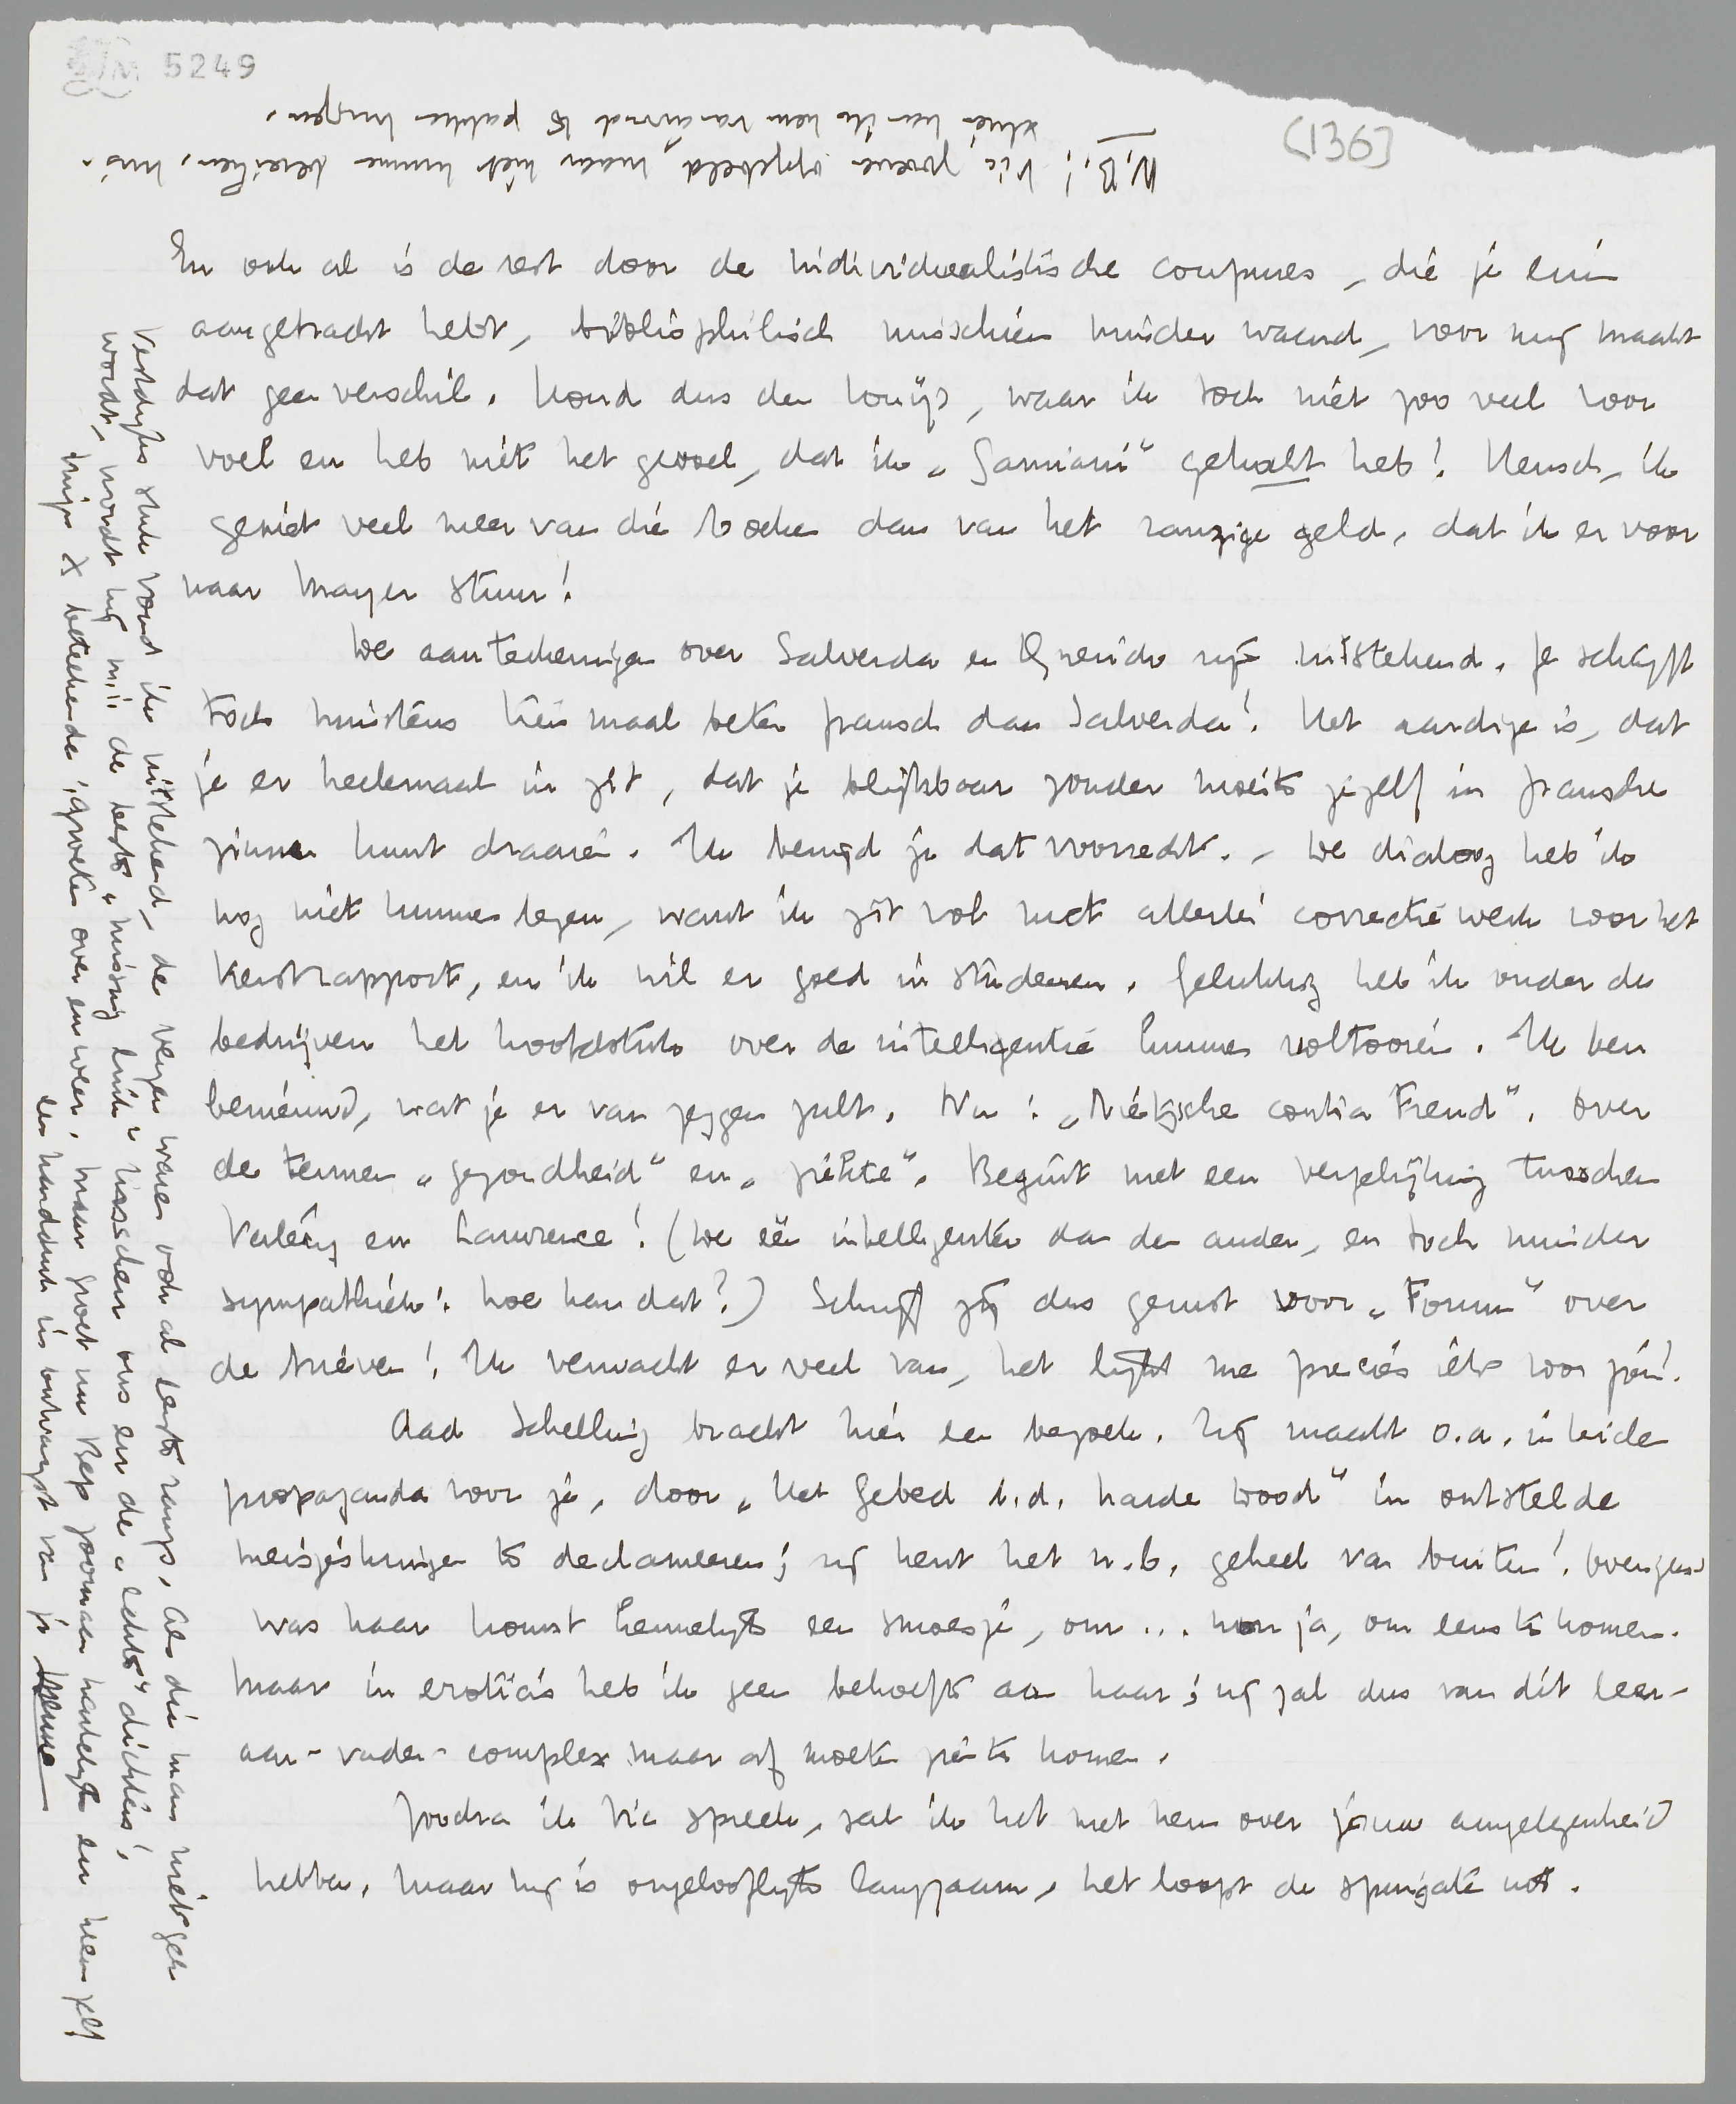 5249
(136)
N.B.! Vic zoeven opgebeld, maar niet kunnen bereiken, mis-
schien kan ik hem vanavond te pakken krijgen.
En ook al is de rest door de individualistische coupures, die je erin
aangebracht hebt, bibliophilisch misschien minder waard, voor mij maakt
dat geen verschil. Houd dus den Louÿs, waar ik toch niet zoo veel voor
voel en heb niet het gevoel, dat ik „Gamiani” gekocht heb! Mensch, ik
geniet veel meer van die boeken dan van het ranzige geld, dat ik er voor
naar Mayer stuur!
De aanteekeningen over Salverda en Querido zijn uitstekend. Je schrijft
toch minstens tien maal beter fransch dan Salverda! Het aardige is, dat
je er heelemaal in zit, dat je blijkbaar zonder moeite jezelf in fransche
zinnen kunt draaien. Ik benijd je dat voorrecht. – De dialoog heb ik
nog niet kunnen lezen, want ik zit vol met allerlei correctiewerk voor het
Kerstrapport, en ik wil er goed in studeeren. Gelukkig heb ik onder de
bedrijven het hoofdstuk over de intelligentie kunnen voltooien. Ik ben
benieuwd, wat je er van zeggen zult. Nu: „Nietzsche contra Freud”. Over
de termen „gezondheid” en „ziekte”. Begint met een vergelijking tusschen
Valéry en Lawrence! (De één intelligenter dan de ander, en toch minder
sympathiek! Hoe kan dat?) Schrijf jij dus gerust voor „Forum” over
de brieven! Ik verwacht er veel van, het lijkt me precies iets voor jou!
Aad Schelling bracht hier een bezoek. Zij maakt o.a. in Leiden
propaganda voor je, door „Het Gebed b.d. harde Dood” in ontstelde
meisjeskringen te declameeren; zij kent het n.b. geheel van buiten! Overigens
was haar komst kennelijk een smoesje, om ... nou ja, om eens te komen.
Maar in eroticis heb ik geen behoefte aan haar; zij zal dus van dit leer-
aar-vader-complex maar af moeten zien te komen.
Zoodra ik Vic spreek, zal ik het met hem over jouw aangelegenheid
hebben. Maar hij is ongelooflijk langzaam, het loopt de spuigaten uit.
Vestdijks stuk vond ik uitstekend, de verzen waren ook al eerste rangs. Als die man niet gek
wordt, wordt hij m.i. de beste „missing link” tusschen ons en de „echte” dichters!
Mijn X beteekende: groeten over en weer. Maar groet nu Bep voornaam hartelijk en hem zelf
een handdruk in ontvangst van je
Menno